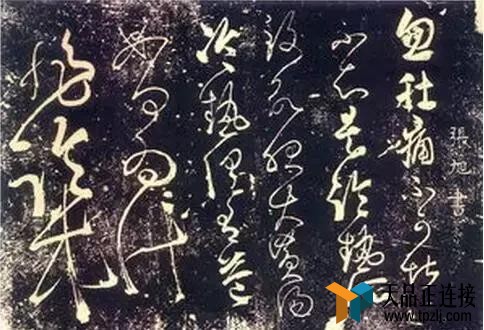 張旭書
忽肚痛不可堪
不知是冷熱所
致欲服大黄湯
冷熱俱有益
如何為計
非臨床
天品正连接
www.tpzlj.com